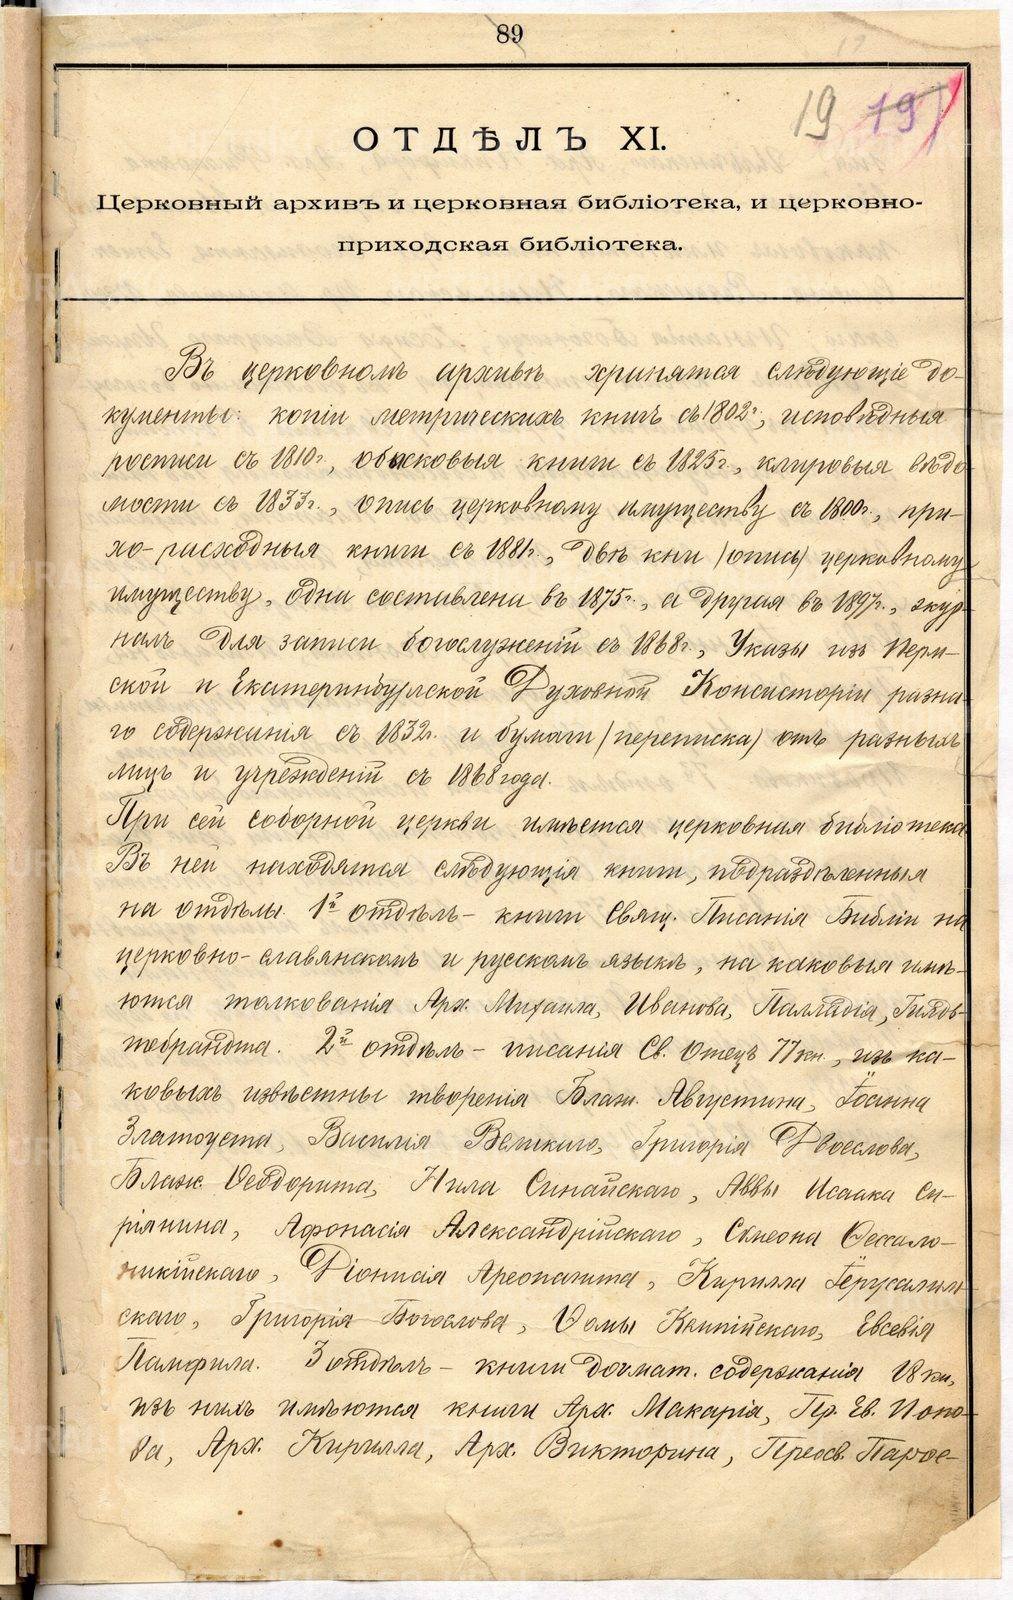 89
19 19
ОТДѢЛЪ XI.
Церковный архивъ и церковная библіотека, и церковно-
приходская библіотека.
Въ церковномъ архивѣ хранятся слѣдующіе до-
кументы: копіи метрическихъ книгъ съ 1802 г., исповѣдныя
росписи съ 1810 г., обысковыя книги съ 1825 г., клировыя вѣдо-
мости съ 1833 г., опись церковному имуществу съ 1800 г., при-
хо-расходныя книги съ 1881 г., двѣ кни (опись) церковному
имуществу, одна составлена въ 1875 г., а другая въ 1897 г., жур-
налъ для записи богослуженій съ 1868 г., Указы изъ Перм-
ской и Екатеринбургской Духовной Консисторіи разна-
го содержанія съ 1832 г. и бумаги (переписка) отъ разныхъ
лицъ и учрежденій съ 1868 года.
При сей соборной церкви имѣется церковная библіотека
Въ ней находятся слѣдующія книги, подраздѣленныя
на отдѣлы. 1й отдѣлъ – книги Свящ. Писанія Библіи на
церковно-славянскомъ и русскомъ языкѣ, на каковыя имѣ-
ются толкованія Арх. Михаила, Иванова, Палладія,
2й отдѣлъ – писанія Св. Отецъ 77 кн., изъ ка-
ковыхъ извѣстны творенія Блаж. Августина, Іоанна
Златоуста, Василія Великаго, Григорія Двоеслова,
Блаж. Ѳеодорита, Нила Синайскаго, Аввы Исаака Си-
ріянина, Афонасія Александрійскаго, Симеона Ѳессало-
никійскаго, Діонисія Ареопагита, Кирилла Іерусалим-
скаго, Григорія Богослова, Ѳомы Кемпійскаго, Евсевія
Памфила. 3 отдѣлъ – книги догмат. содержанія 18 кн.,
изъ нихъ имѣются книги Арх. Макарія, Пр. Ев. Попо-
ва, Арх. Кирилла, Арх. Викторина, Преосв. Парѳе-